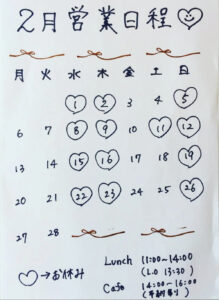 2月営業日程
月 火 水 木 金 土 日
1 2 3 4 5
6 7 8 9 10 11 12
13 14 15 16 17 18 19
20 21 22 23 24 25 26
27 28
→お休み
Lunch 11:00~14:00
(L.O 13:30)
Cafe 14:00~16:00
(予約有り)